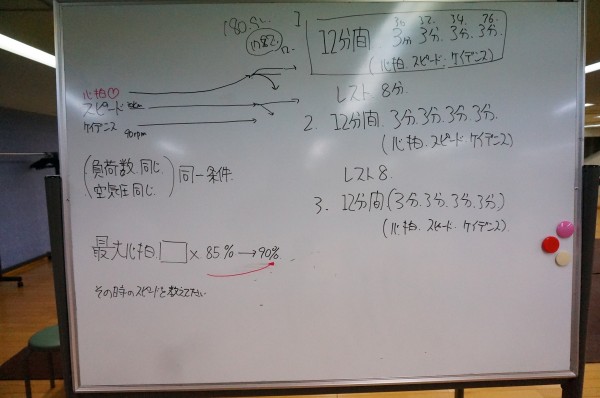 心拍
スピード
ケイデンス 90rpm
(負荷数.同じ.
空気圧同じ.) 同一条件.
最大心拍 □ × 85% → 90%.
その時のスピードを教えて下さい
1
30 32. 34. 36.
12分間. 3分 3分. 3分. 3分.
(心拍. スピード. ケイデンス)
レスト 8分.
2. 12分間. 3分. 3分. 3分. 3分.
(心拍. スピード. ケイデンス)
レスト 8.
3. 12分間 (3分. 3分. 3分. 3分.)
(心拍. スピード. ケイデンス)